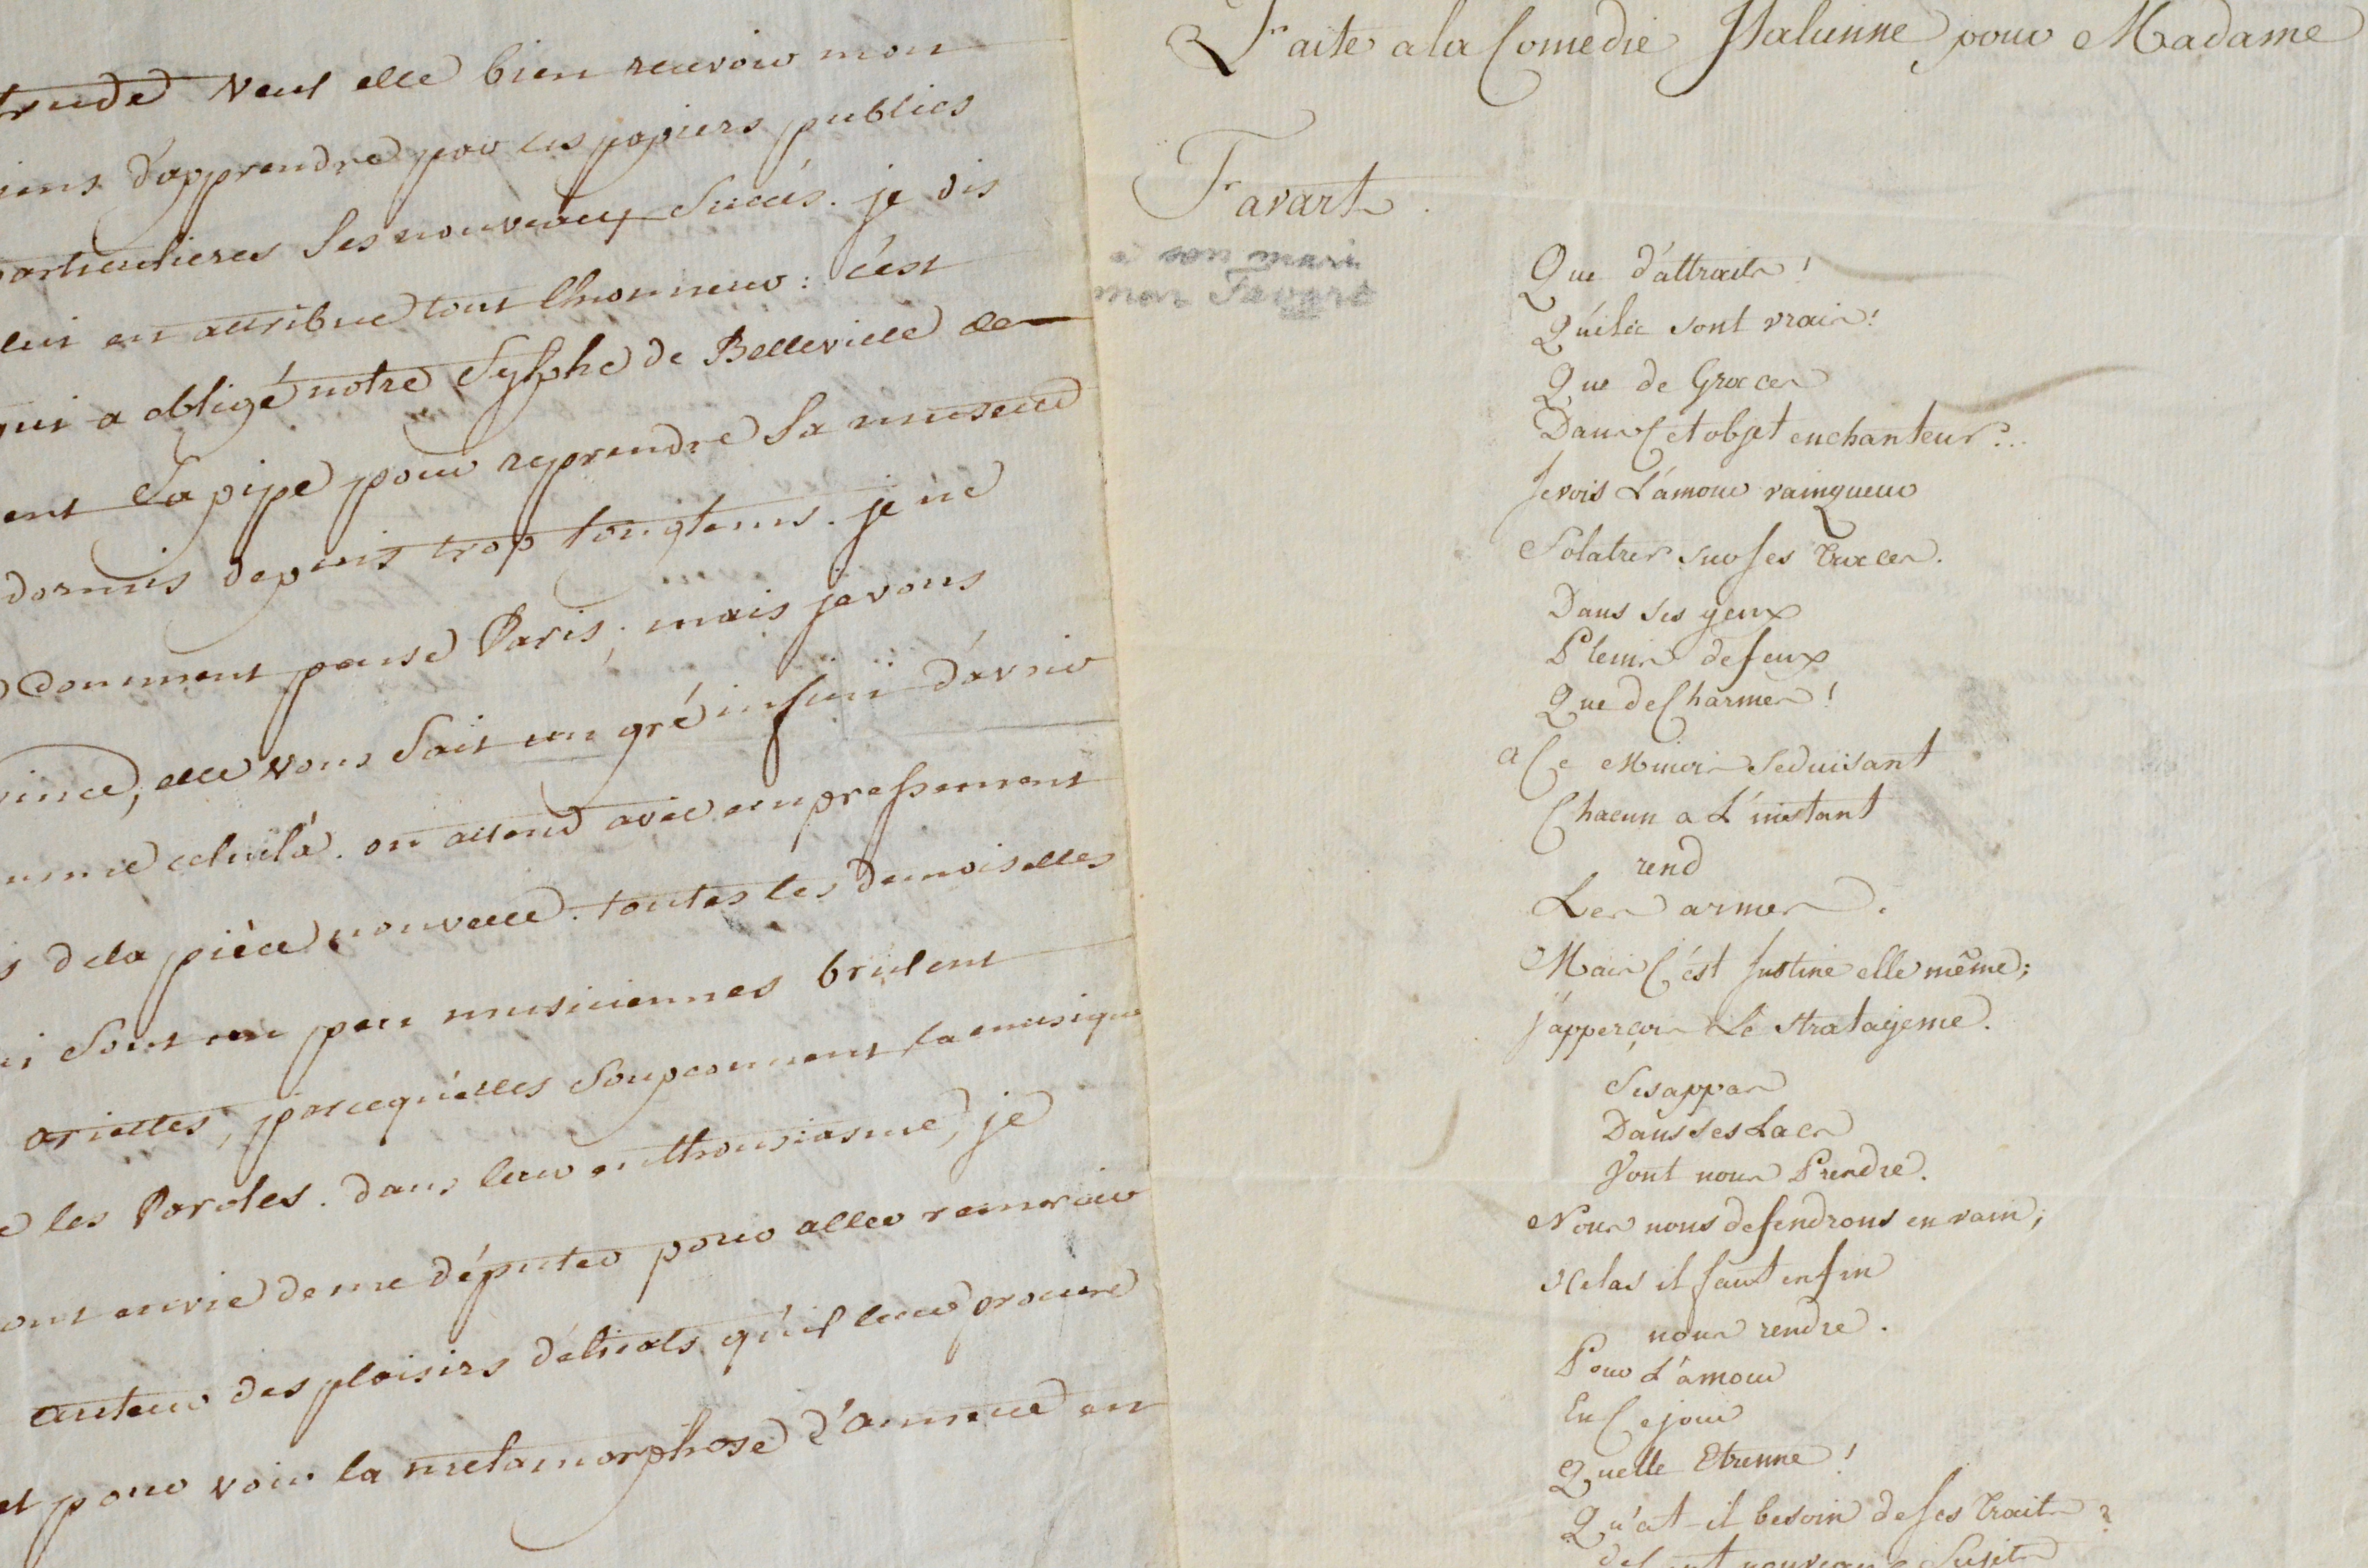 veut elle bien recevoir mon
d'apprendre par les papiers publics
particulieres ses nouveaux succès. je vis
lui en attribue tout l'honneur : c'est
qui a obligé notre Sylphe de Belleville de
sa pipe pour reprendre sa musette
dormis depuis trop longtems. je ne
comment pense Paris ; mais je vous
elle vous sait un gré infini d'avoir
celuila. on attend avec empressement
s de la pièce nouvelle. toutes les demoiselles
sont un peu musiciennes brulent
ariettes, parcequ'elles soupçonnent la musique
les Paroles. dans leur enthousiasme, je
ont envie de me députer pour aller
auteur des plaisirs délicats qu'il leur procure
et pour voir la metamorphose d'annette en
Faite a la Comedie Italienne pour Madame
Favart.
a son mari
mon Favart
Que d'attraits !
Qu'ils sont vrais !
Que de Graces
Dans Cet objet enchanteur ?..
Je vois L'amour vainqueur
Folatrer sur ses traces.
Dans ses yeux
Pleins de feux
Que de Charmes !
a Ce Minois Seduisant
Chacun a L'instant
rend
Les armes.
Mais C'est Justine elle même ;
J'apperçois Le stratageme.
Ses appas
Dans ses Lacs
Vont nous Prendre.
Nous nous defendrons en vain ;
Helas il faut enfin
nous rendre.
Pour L'amour
En Ce jour
Quelle Etrenne !
Qu'at-il besoin de ses traits ?
nouveaux Sujets